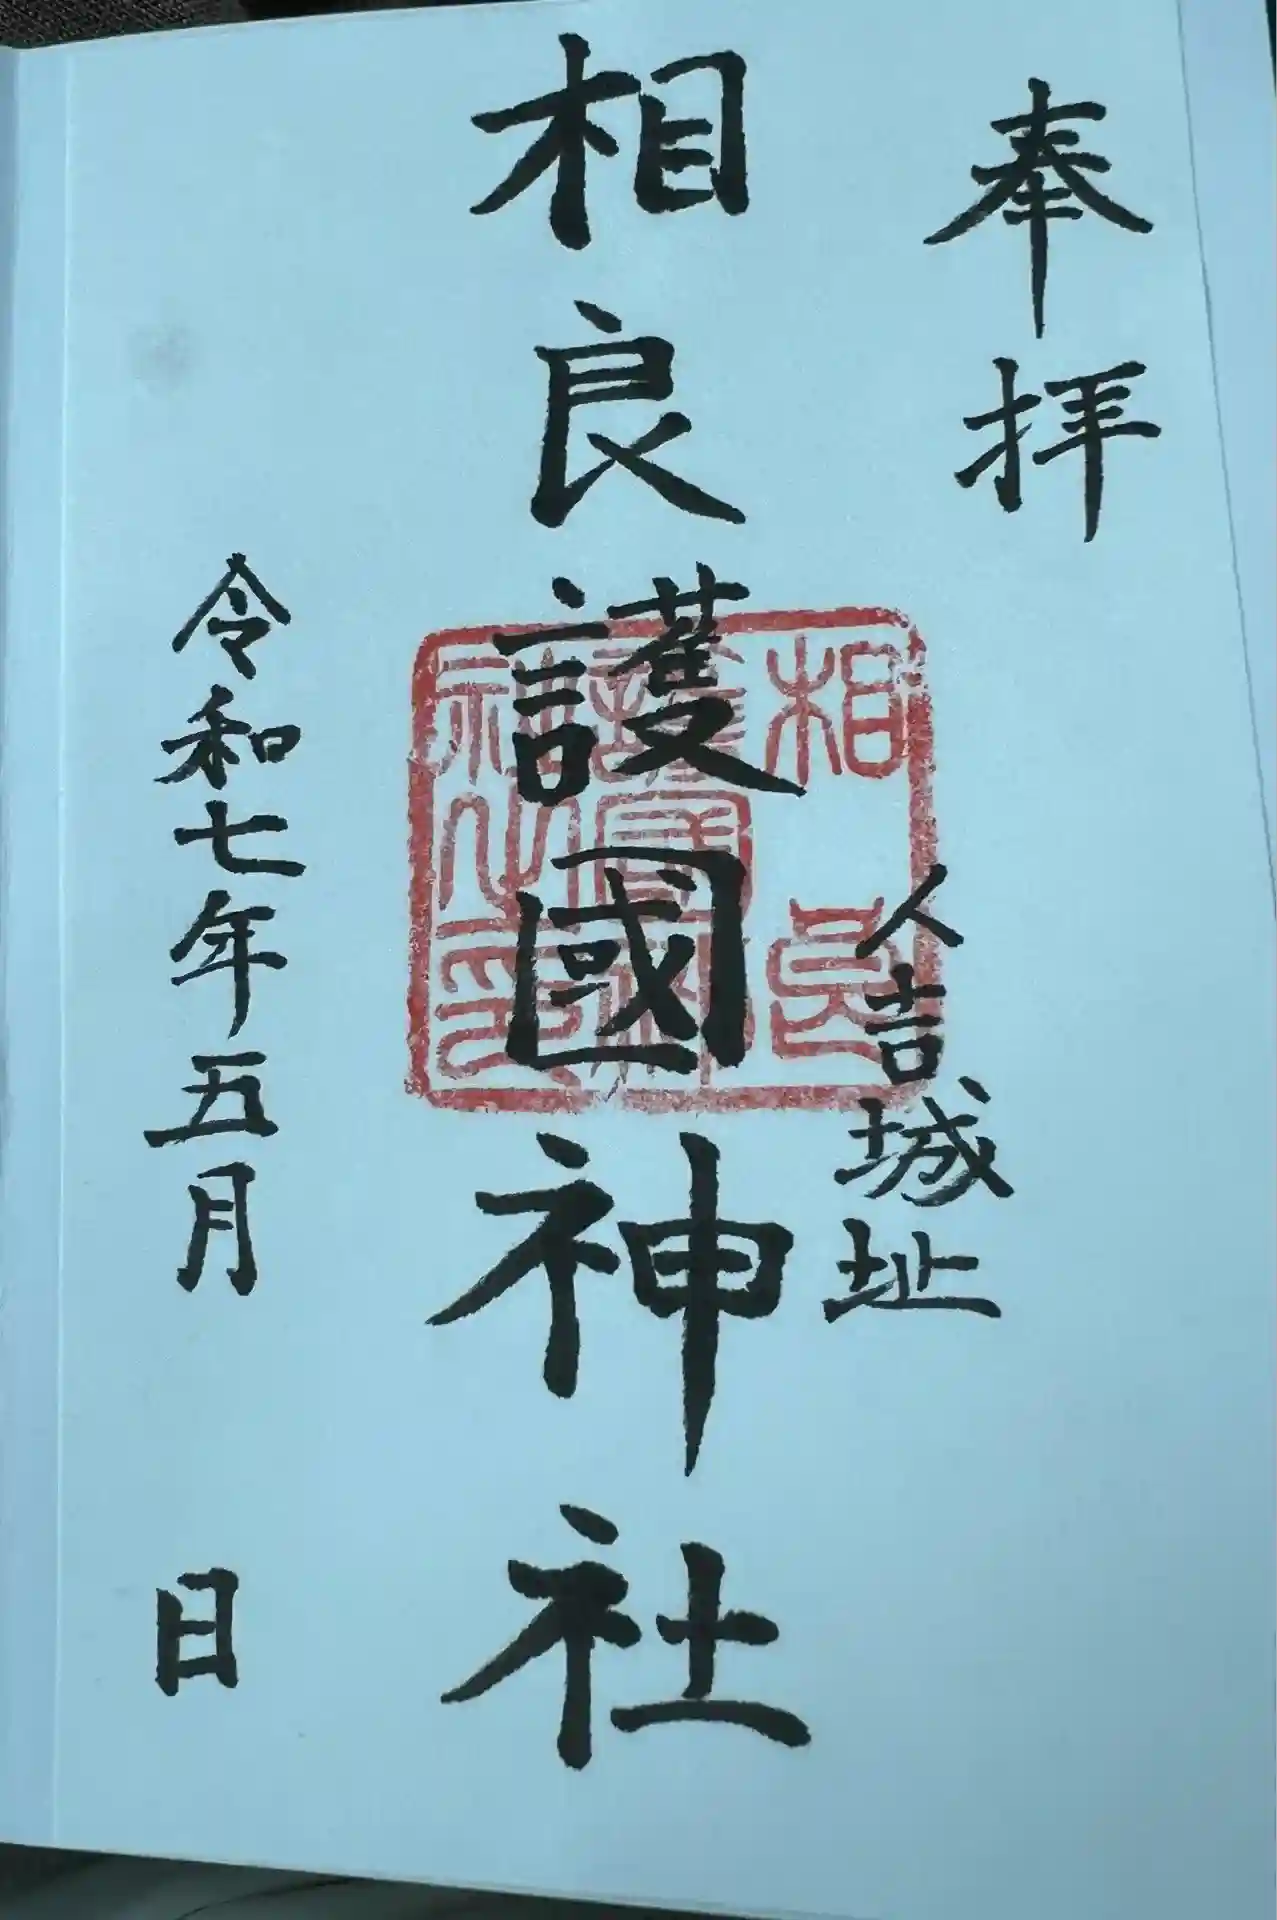 奉拝
人吉城址
相良護國神社
相良
護國神
社之印
令和七年五月 日